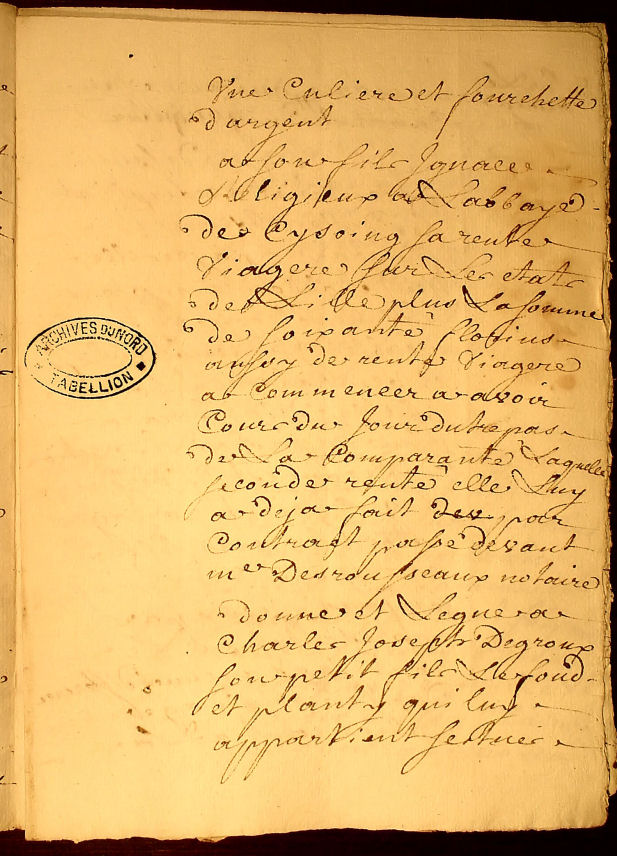 Une Culiere et fourchette
d'argent
a son fils Ignace
Religieux a Labbaye
de Cysoing sa rente
Viagere sur Les etats
de Lille plus La somme
de soixante florins
aussy de rente Viagere
a Commencer a avoir
Cours du jour du trepas
de La Comparante Laquelle
seconde rente elle Luy
a deja fait par
Contract passé devant
me Desrousseaux notaire
donne et Legue a
Charles Joseph Degroux
son petit fils Le fond
et planty qui luy
appartient
ARCHIVES DU NORD
TABELLION